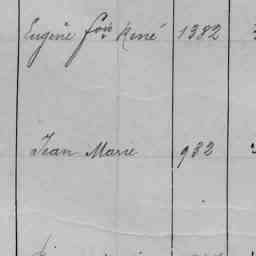 Eugène fois René 1382
Jean Marie 932